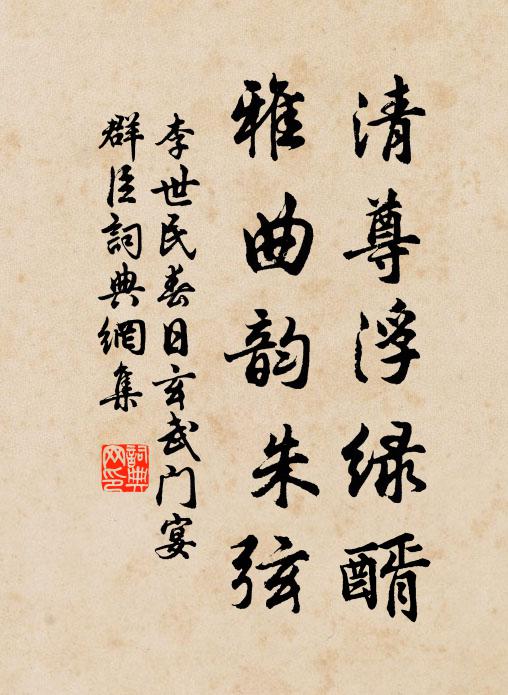 清尊浮绿醑
雅曲韵朱弦
李世民春日玄武门宴
群臣詞典網集
詞典
网印